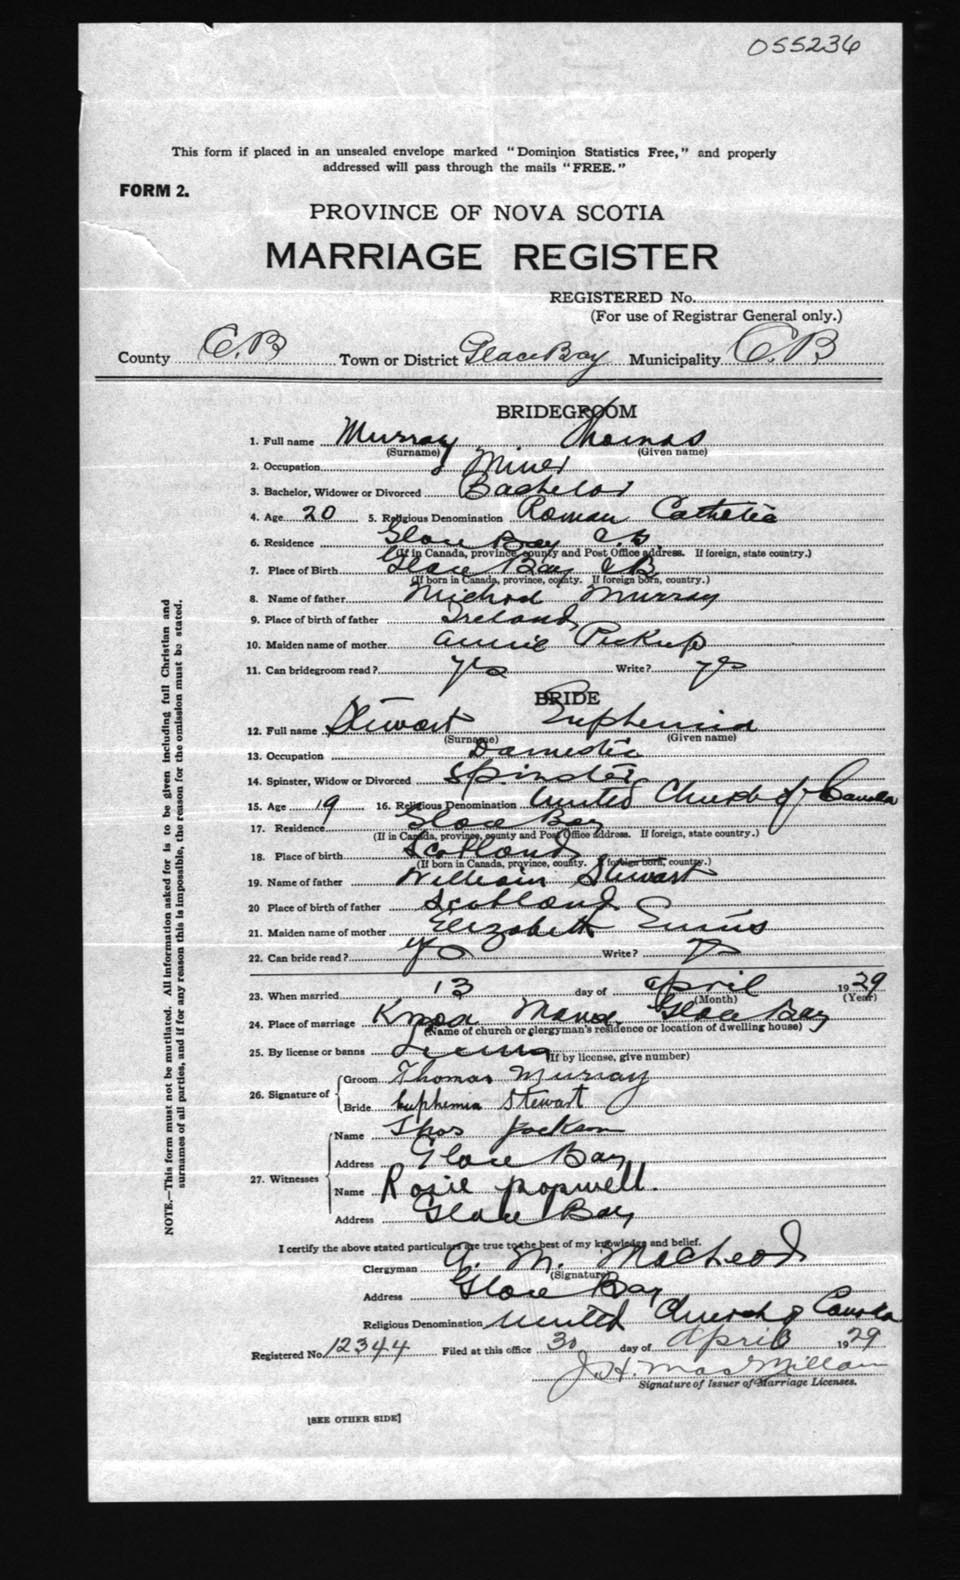 055236
This form if placed in an unsealed envelope marked "Dominion Statistics Free," and properly
addressed will pass through the mails "FREE."
FORM 2.
PROVINCE OF NOVA SCOTIA
MARRIAGE REGISTER
REGISTERED No.
(For use of Registrar General only.)
County C.B Town or District Glace Bay Municipality C.B
BRIDEGROOM
1. Full name Murray Thomas
(Surname) (Given name)
2. Occupation Miner
3. Bachelor, Widower or Divorced Bachelor
4. Age 20 5. Religious Denomination Roman Catholic
6. Residence Glace Bay C.B.
(If in Canada, province, county and Post Office address. If foreign, state country.)
7. Place of Birth Glace Bay CB
(If born in Canada, province, county. If foreign born, country.)
8. Name of father Michael Murray
9. Place of birth of father Ireland
10. Maiden name of mother Annie Pickup
11. Can bridegroom read? yes Write? yes
BRIDE
12. Full name Stewart Euphemia
(Surname) (Given name)
13. Occupation Domestic
14. Spinster, Widow or Divorced Spinster
15. Age 19 16. Religious Denomination United Church of Canada
17. Residence Glace Bay
(If in Canada, province, county and Post Office address. If foreign, state country.)
18. Place of birth Scotland
(If born in Canada, province, county. If foreign born, country.)
19. Name of father William Stewart
20 Place of birth of father Scotland
21. Maiden name of mother Elizabeth
22. Can bride read? yes Write? yes
23. When married 13 day of April 1929
(Month) (Year)
24. Place of marriage Knox Manse Glace Bay
(Name of church or clergyman's residence or location of dwelling house)
25. By license or banns License (If by license, give number)
26. Signature of Groom Thomas Murray
Bride Euphemia Stewart
27. Witnesses Name Thos Jackson
Address Glace Bay
Name Rosie Popwell.
Address Glace Bay
I certify the above stated particulars are true to the best of my knowledge and belief.
Clergyman A. M. MacLeod
(Signature)
Address Glace Bay
Religious Denomination United Church of Canada
Registered No. 12344 Filed at this office 30 day of April 1929
J. H. MacMillan
Signature of Issuer of Marriage Licenses.
[SEE OTHER SIDE]
NOTE.—This form must not be mutilated. All information asked for is to be given including full Christian and
surnames of all parties, and if for any reason this is impossible, the reason for the omission must be stated.